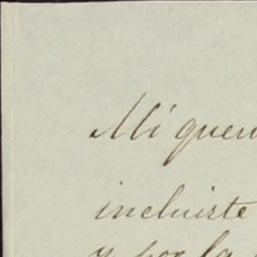 Mi quer
incluirte
y por la